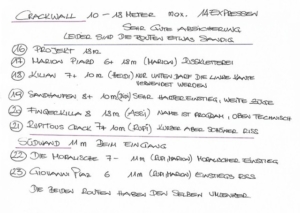 CRACKWALL 10 - 18 METER MAX. 14 EXPRESSEN
SEHR GUTE ABSICHERUNG
LEIDER SIND DIE ROUTEN ETWAS SANDIG
16 PROJEKT 18m
17 MARION PIARD 6+ 12m (MARION)
18 KILIAN 7+ 10m (HEIDI) NUR UNTEN DARF DIE LINKE KANTE
VERWENDET WERDEN
19 SANDKASTEN 8+ 10m SEHR HARTER EINSTIEG, WEITE ZÜGE
20 FINGERKILLA 8 18m NAME IST PROGRAM, OBEN TECHNISCH
21 RIPITOUS CRACK 7+ 10m (ROPI) KURZER ABER SCHÖNER RISS
SÜDWAND 11m BEIM EINGANG
22 DIE MORALISCHE 7- 11m MORALISCHER EINSTIEG
23 GIOVANNI PIAZ 6 11m EINSTIEGS RISS
DIE BEIDEN ROUTEN HABEN DEN SELBEN UMLENKER